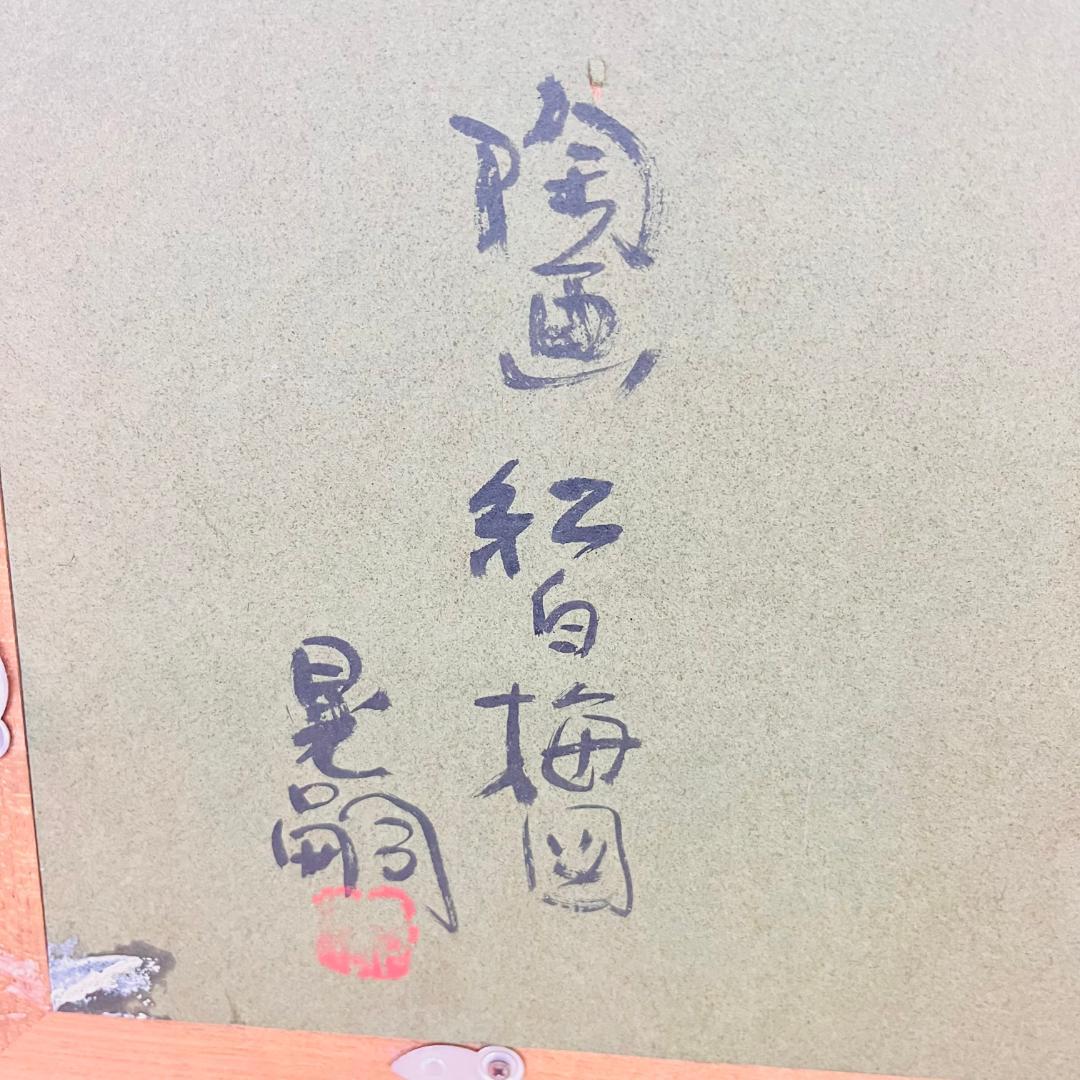 陶画 紅白梅図
晃嗣